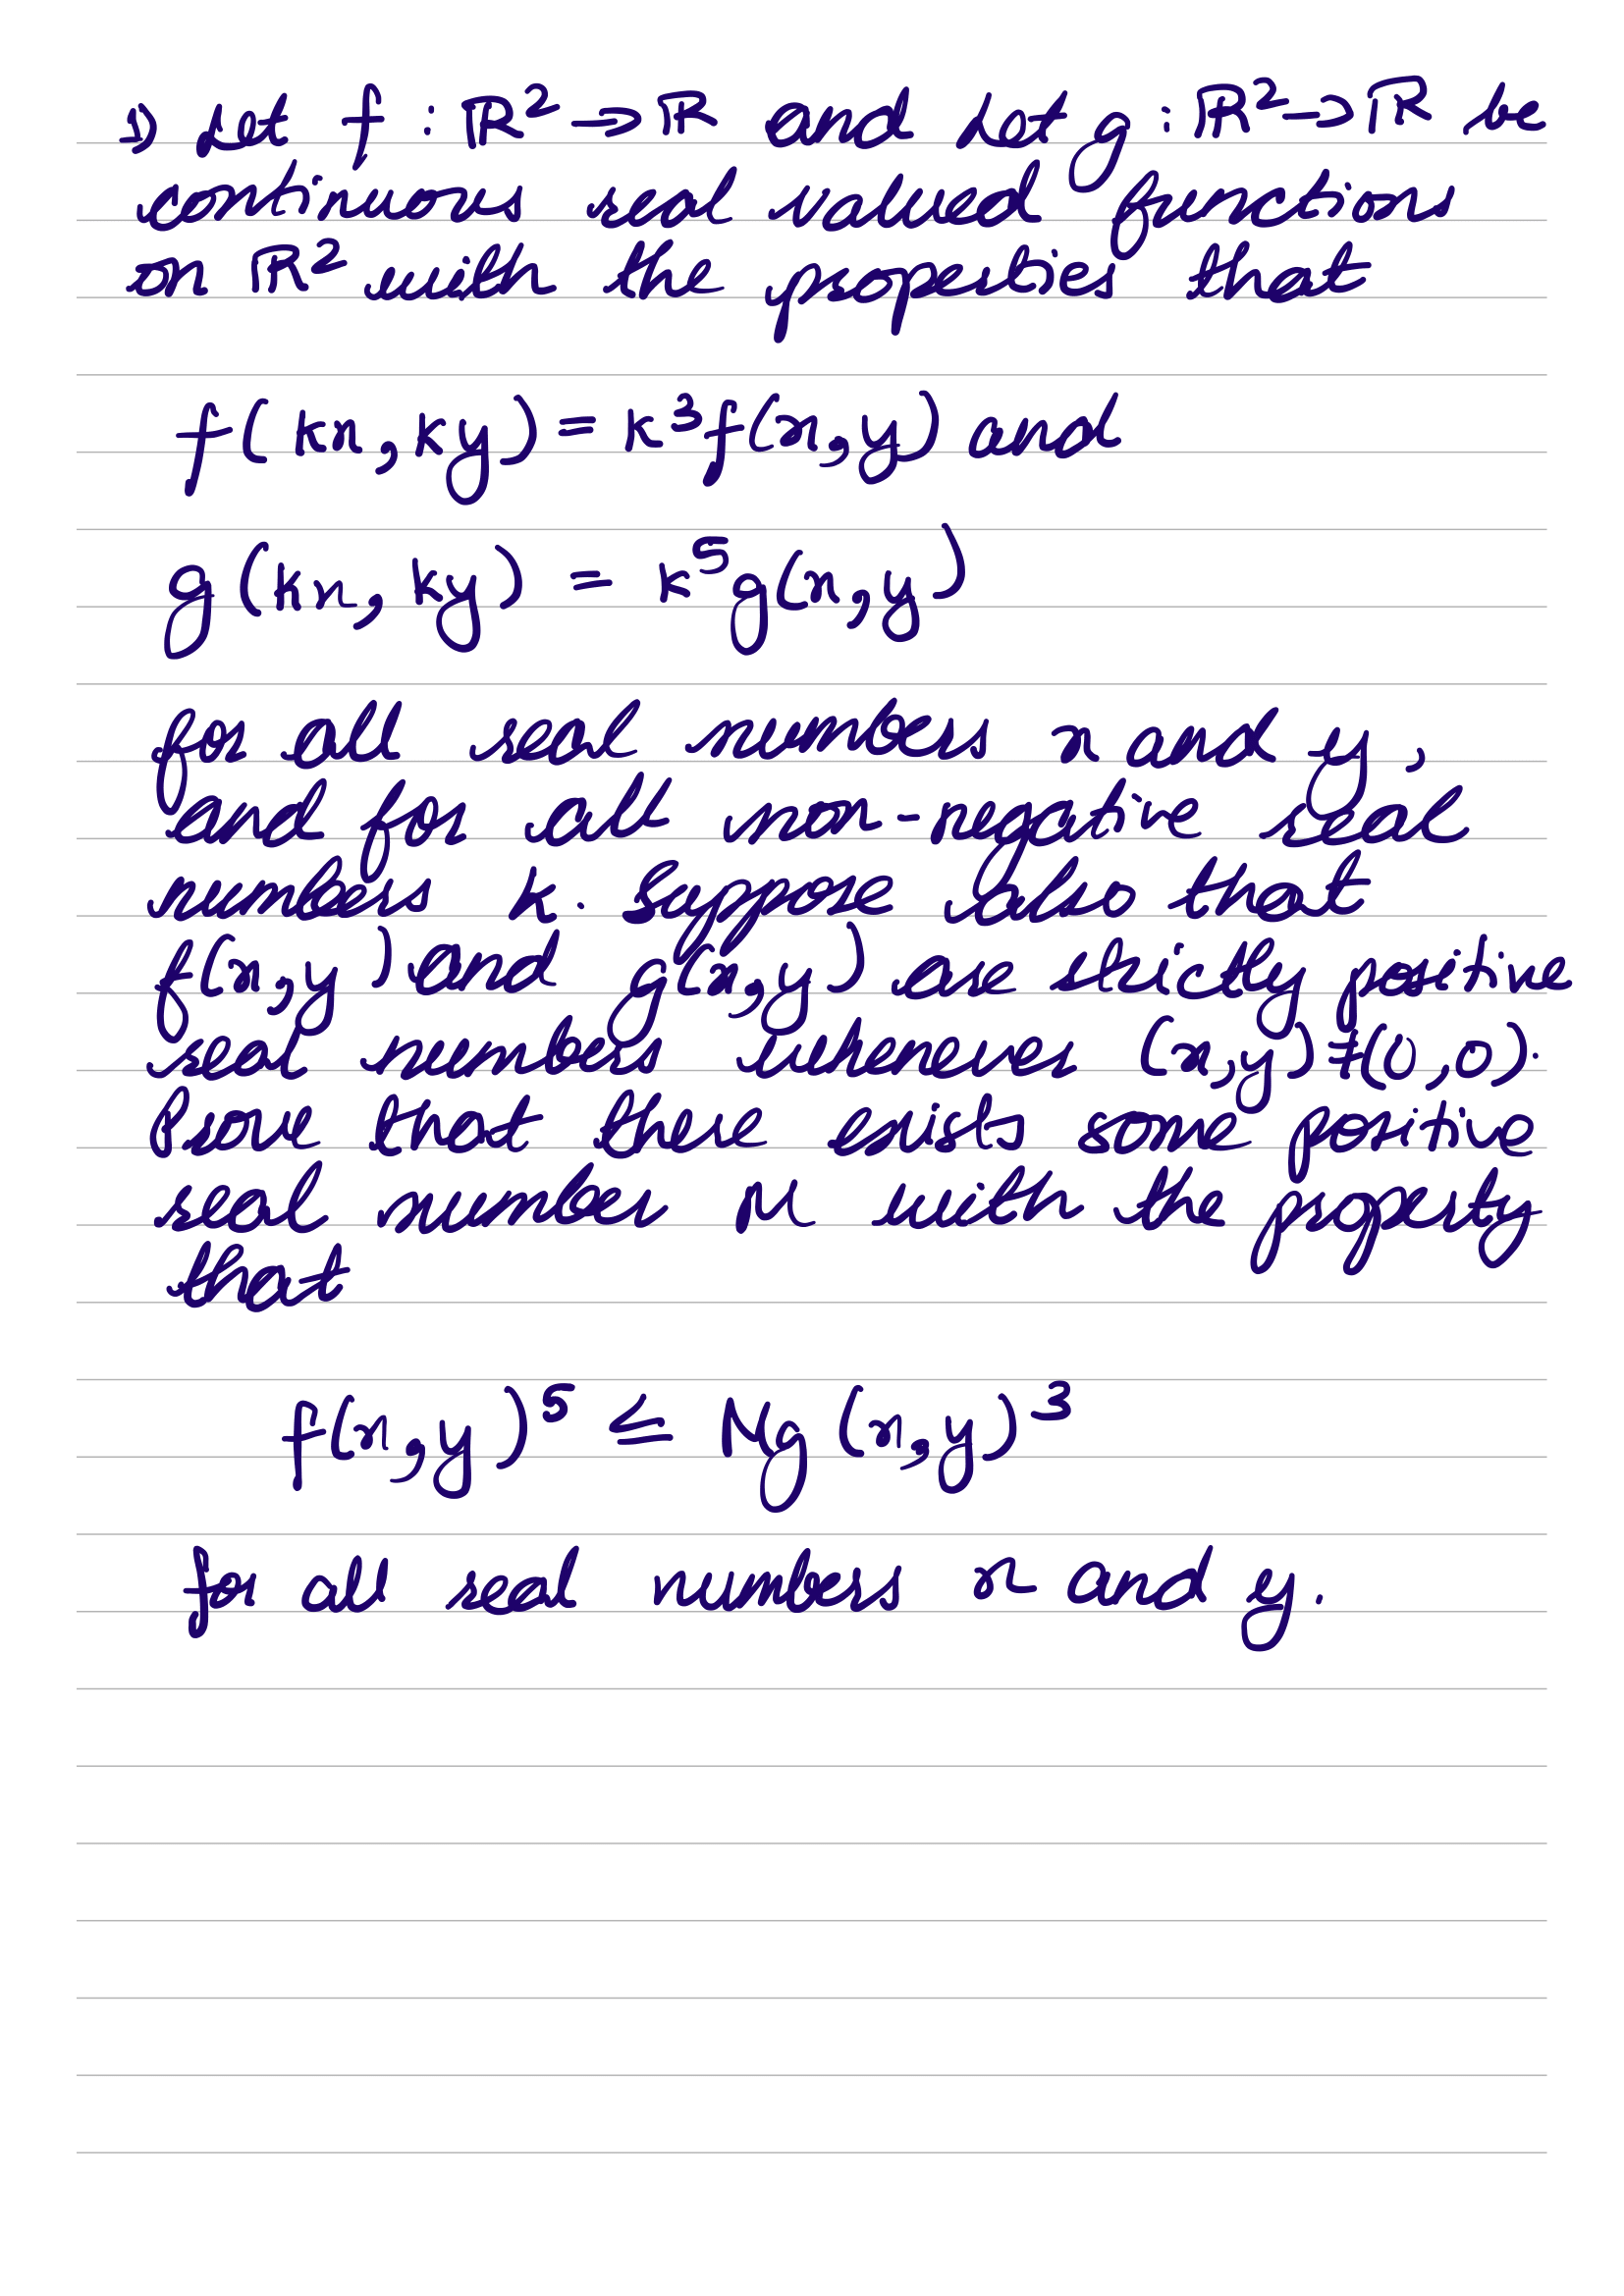 1) Let f : ℝ² → ℝ and Let g : ℝ² → ℝ be
continuous real valued functions
on ℝ² with the properties that
f(kx, ky) = k³f(x, y) and
g(kx, ky) = k⁵g(x, y)
for all real numbers x and y,
and for all non-negative real
numbers k. Suppose also that
f(x, y) and g(x, y) are strictly positive
real numbers whenever (x, y) ≠ (0, 0).
Prove that there exists some positive
real number M with the property
that
f(x, y)⁵ ≤ Mg(x, y)³
for all real numbers x and y.